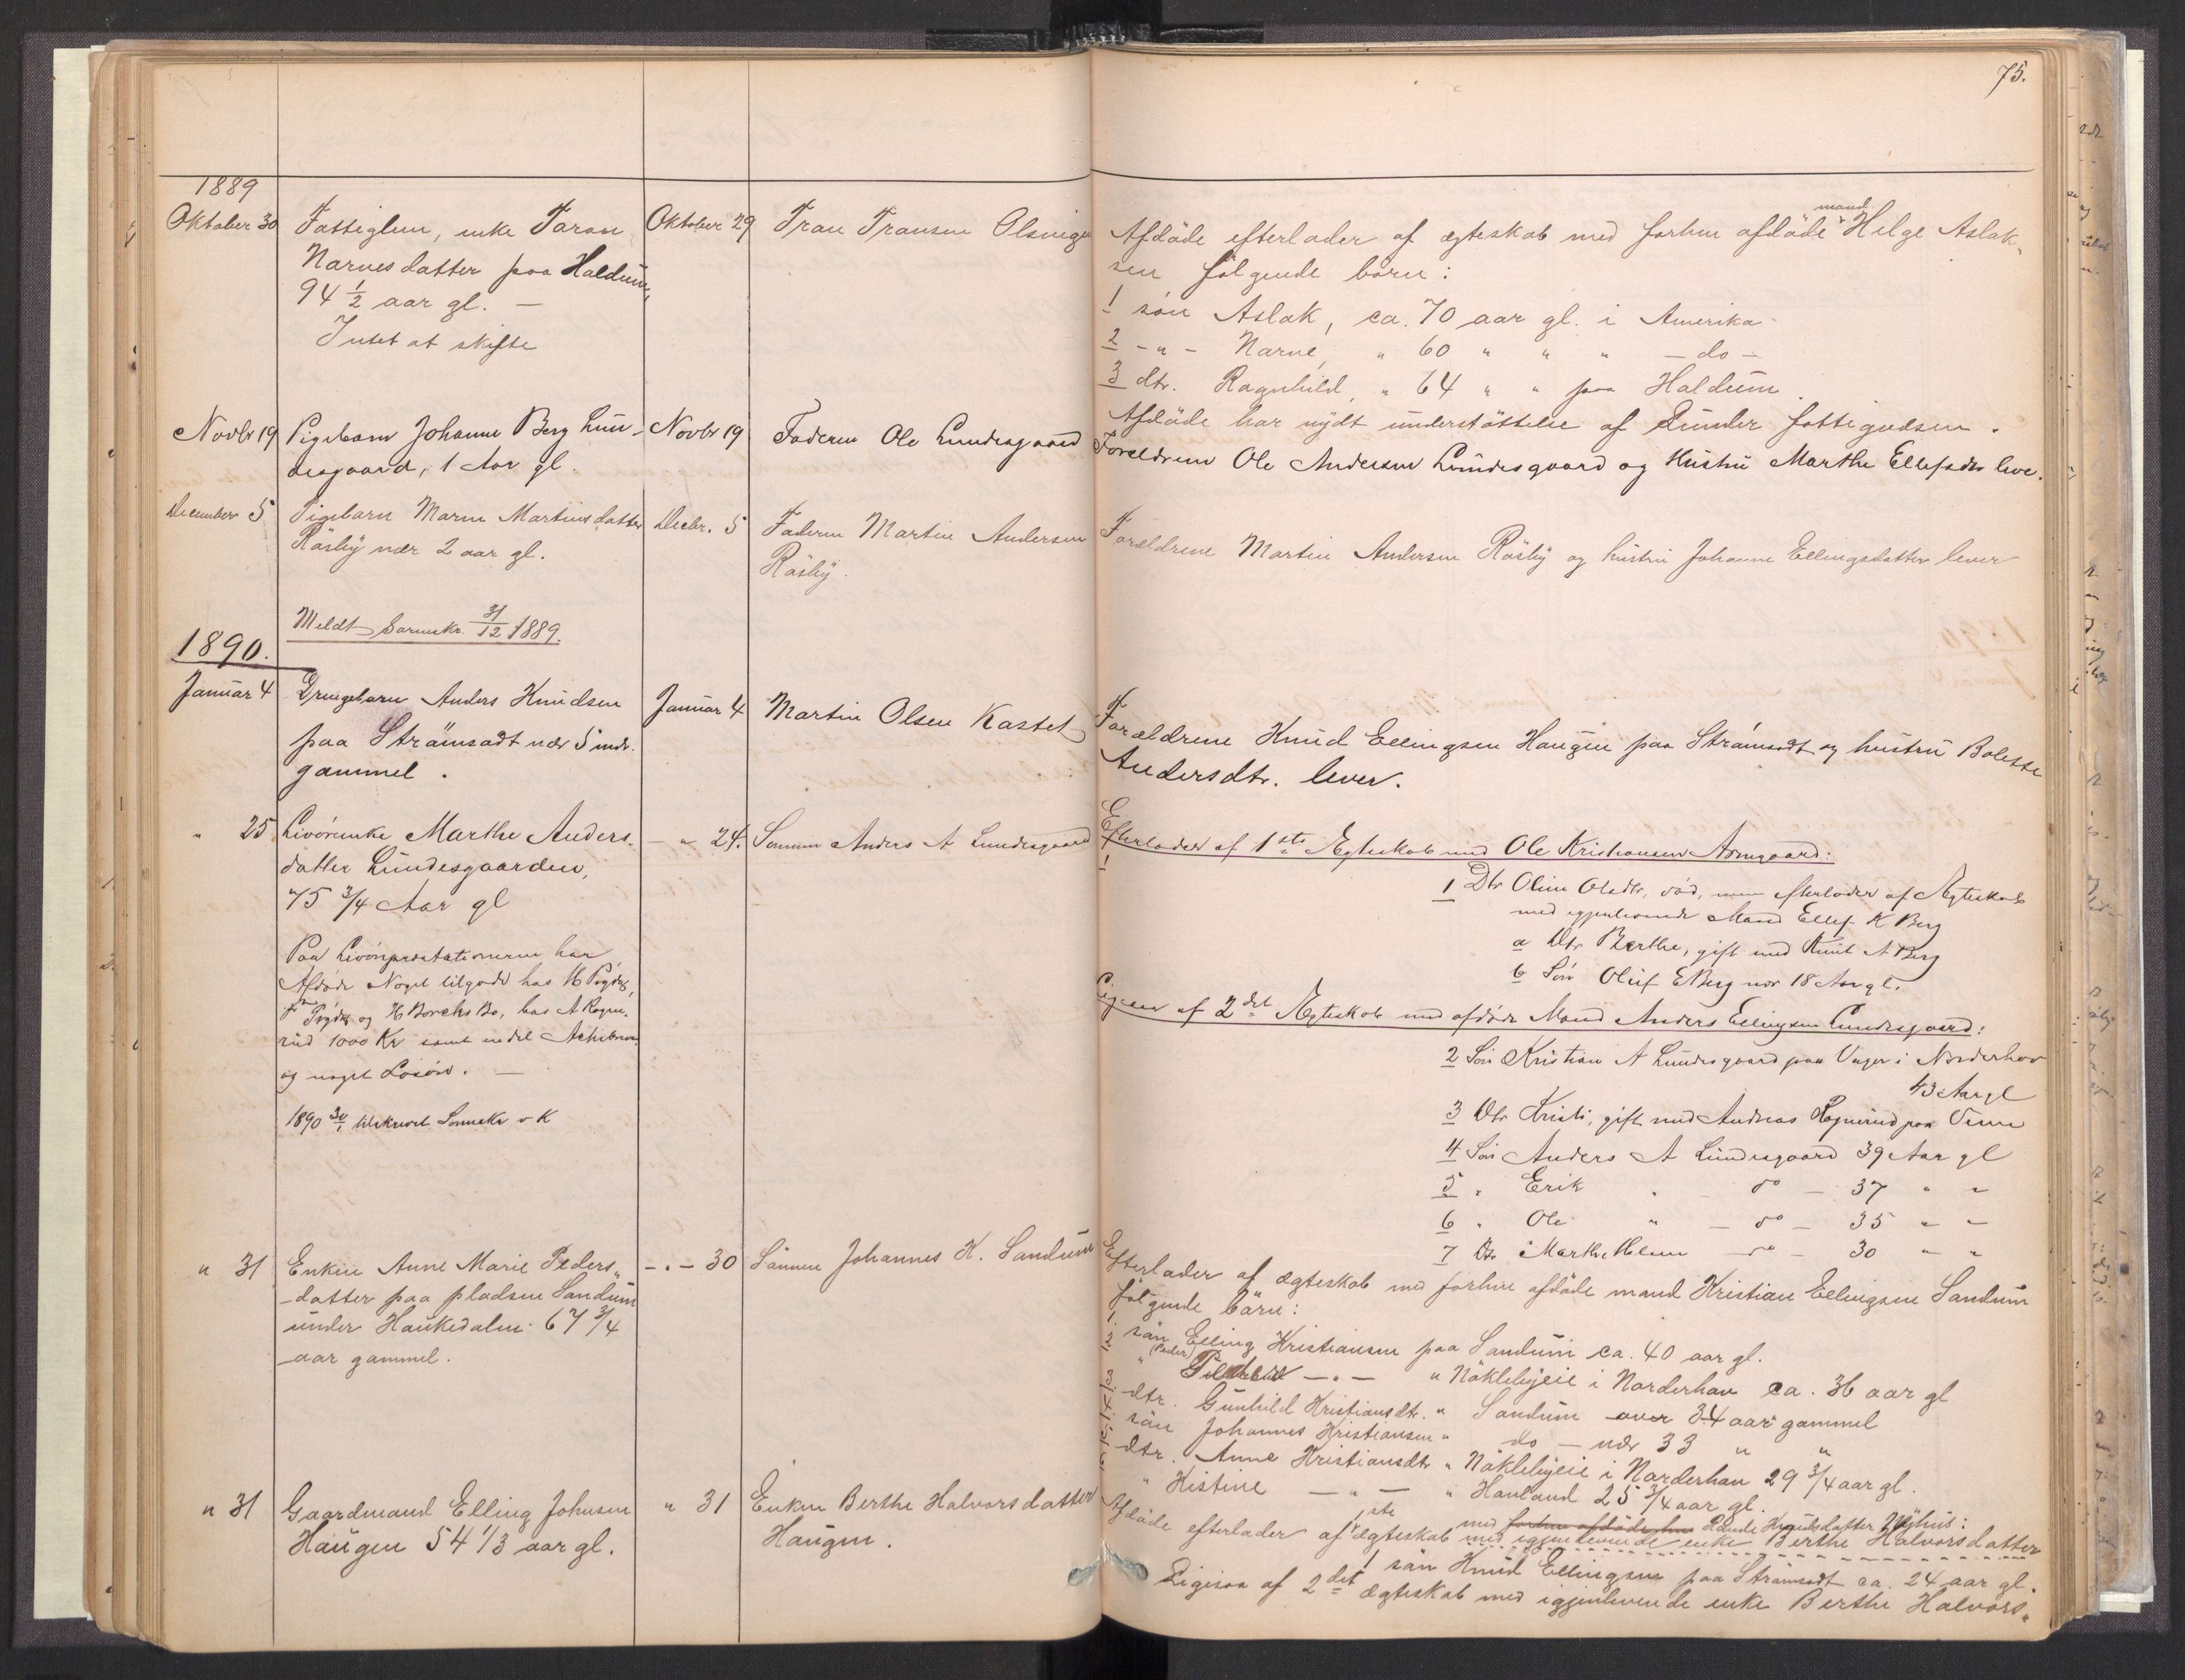 75.
1889
Oktober 30 Fattiglem, enke Taran Oktober 29 Tran Transen Olsengen
Narvesdatter paa Haldum,
94 1/2 aar gl. —
Intet at skifte
Afdöde efterlader af ægteskab med forhen afdöde mand Helge Aslak-
sen fölgende börn:
1 sön Aslak, ca. 70 aar gl. i Amerika
2 - " - Narve, " 60 " " " — do —
3 dtr. Ragnhild, " 64 " " paa Haldum.
Afdöde har nydt understöttelse af Lunder fattigvæsen.
Novbr 19 Pigebarn Johanne Berg Lun- Novbr 19 Faderen Ole Lundesgaard
desgaard, 1 Aar gl.
Forældrene Ole Andersen Lundesgaard og Hustru Marthe Ellefsdtr leve.
December 5 Pigebarn Maren Martinsdatter Decbr. 5 Faderen Martin Andersen
Råsby nær 2 aar gl. Råsby.
Forældrene Martin Andersen Råsby og hustru Johanne Ellingsdatter lever
Meldt Sorenskr. 31/12 1889.
1890.
Januar 4 Drengebarn Anders Knudsen Januar 4 Martin Olsen Kastet
paa Strömsodt nær 5 mdr.
gammel.
Forældrene Knud Ellingsen Haugen paa Strömsodt og hustru Bolette
Andersdtr. lever.
" 25 Livörenke Marthe Anders- — " 24. Sønnen Anders A Lundesgaard
datter Lundesgaarden,
75 3/4 Aar gl
Paa Livörsprestationerne har
Afdøde Noget tilgode hos
og H Borchs Bo, hos A Rogne-
rud 1000 Kr samt endel
og noget Løsøre. —
1890 Sorenskr
Efterlader af 1ste Ægteskab med Ole Kristiansen
1 Dtr Oline Olsdtr, død, men efterlader af Ægteskab
med igjenlevende Mand Ellef K Berg
a Dtr Berthe, gift med Knut A Berg
b Søn Oluf E Berg nær 18 Aar gl.
Ligesaa af 2det Ægteskab med afdøde Mand Anders Ellingsen Lundesgaard:
2 Søn Kristian A Lundesgaard paa Vager i Norderhov
43 Aar gl
3 Dtr Kristi, gift med Andreas Rognerud paa Veme
4 Søn Anders A Lundesgaard 39 Aar gl
5 " Erik " — do — 37 " "
6 " Ole " — do — 35 " "
7 Dtr Marthe Helene — do — 30 " "
" 31 Enken Anne Marie Peders- — " — 30 Sönnen Johannes K. Sandum
datter paa pladsen Sandum
under Haukedalen 67 3/4
aar gammel.
Efterlader af ægteskab med forhen afdöde mand Kristian Ellingsen Sandum
fölgende börn:
1 sön Elling Kristiansen paa Sandum ca. 40 aar gl.
2 " (Peder) Peder — " — " Nökleby­eie i Norderhov ca. 36 aar gl
3 dtr. Gunhild Kristiansdtr. " Sandum over 34 aar gammel
4 sön Johannes Kristiansen " do — nær 33 " "
5 dtr. Anne Kristiansdtr " Nöklebyeie i Norderhov 29 3/4 aar gl.
6 " Kistine — " — " Hauland 25 3/4 aar gl.
" 31 Gaardmand Elling Johnsen " 31 Enken Berthe Halvorsdatter
Haugen 54 1/3 aar gl. Haugen.
Afdöde efterlader af 1ste ægteskab med forhen afdöde hus Rande Knudsdatter Nyhus:
med igjenlevende enke Berthe Halvorsdatter
1 sön Knud Ellingsen paa Strömsodt ca. 24 aar gl.
Ligesaa af 2det ægteskab med igjenlevende enke Berthe Halvors-